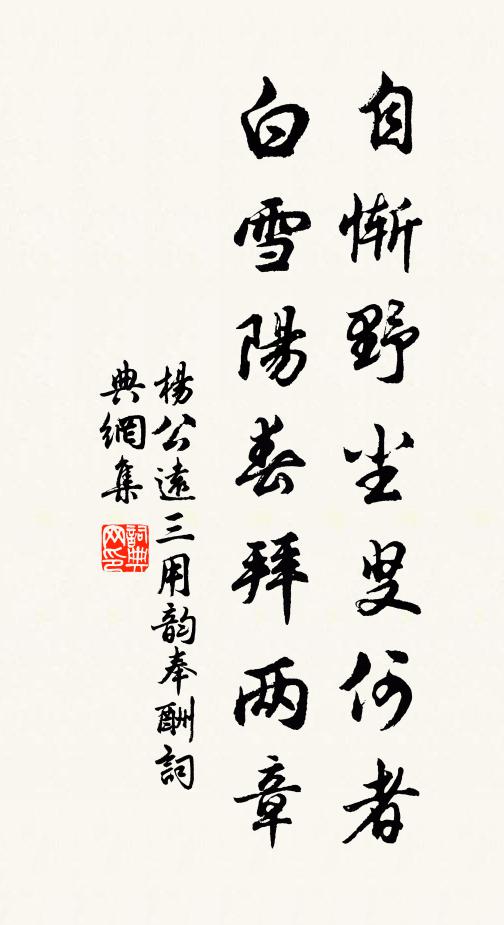 自惭野坐叟何者
白雪陽春拜两章
楊公遠三用韵奉酬詞
典網集
詞典网印